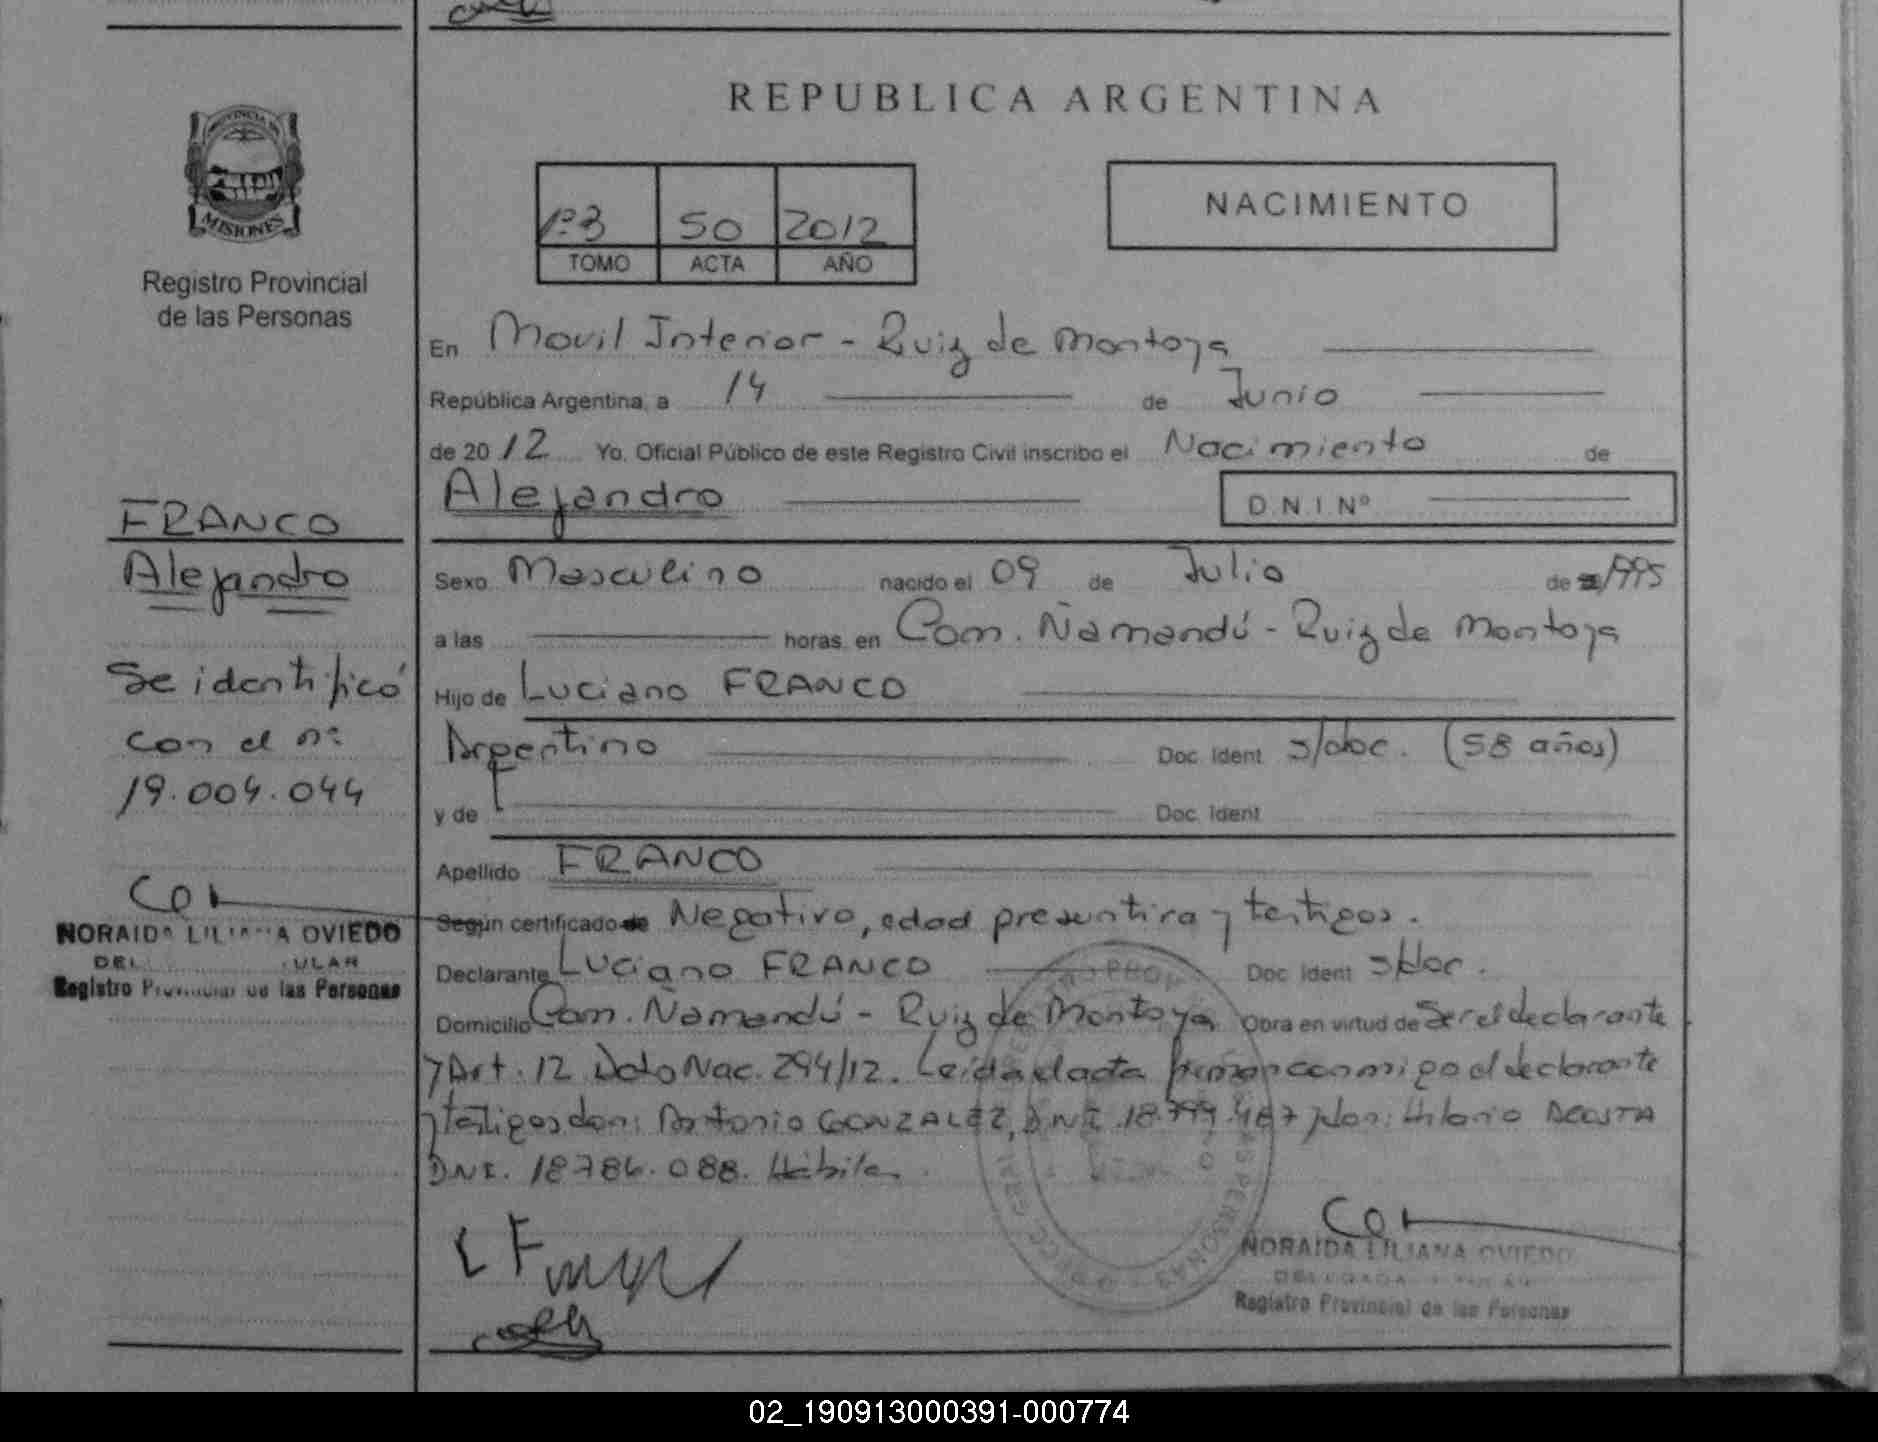 REPUBLICA ARGENTINA
PROVINCIA DE
MISIONES
Registro Provincial
de las Personas
NACIMIENTO
50 2012
TOMO ACTA AÑO
En Movil Interior - Ruiz de Montoya
República Argentina, a 14 de Junio
de 2012 Yo, Oficial Público de este Registro Civil inscribo el Nacimiento de
Alejandro D.N.I. Nº
FRANCO
Alejandro
Se identificó
con el nº
19.004.044
NORAIDA LILIANA OVIEDO
Registro Provincial de las Personas
Sexo Masculino nacido el 09 de Julio de 1995
a las horas, en Com. Ñamandú - Ruiz de Montoya
Hijo de Luciano FRANCO
Argentino Doc. Ident. s/doc. (58 años)
y de Doc. Ident.
Apellido FRANCO
Según certificado de Negativo, edad presuntiva y testigos.
Declarante Luciano FRANCO Doc. Ident. s/doc.
Domicilio Com. Ñamandú - Ruiz de Montoya Obra en virtud de Ser el declarante
y Art. 12 Dcto Nac. 294/12. Leida el acta firman conmigo el declarante
y testigos don: Antonio GONZALEZ, DNI. y don: Hilario ACOSTA
DNI. 18.786.088. Hábiles.
NORAIDA LILIANA OVIEDO
Registro Provincial de las Personas
02_190913000391-000774